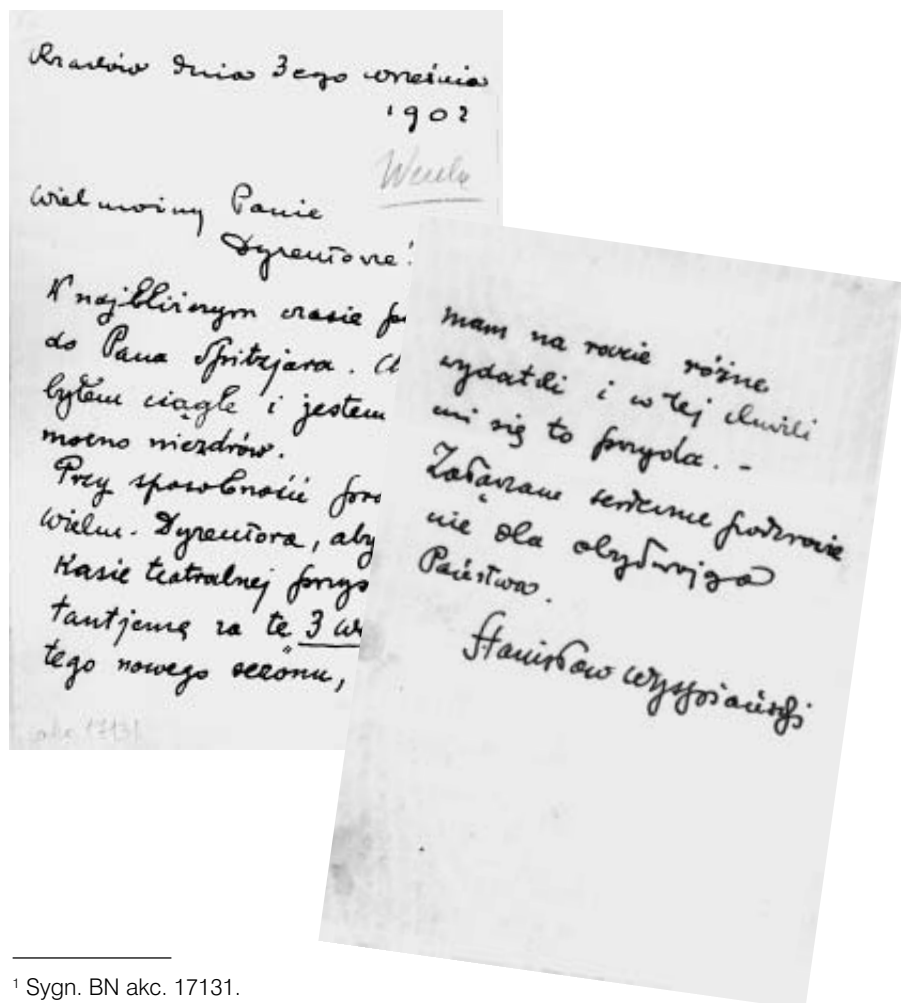 Kraków dnia 3ego września
1902
Wielmożny Panie
Dyrektorze!
W najbliższym czasie
do Pana Spritzjara.
byłem ciągle i jestem
mocno niezdrów.
Przy sposobności
Wielm. Dyrektora, aby
Kasie teatralnej
tantjemę za te 3
tego nowego sezonu,
akc 17131
mam na razie różne
wydatki i w tej chwili
mi się to przyda. –
Załączam serdeczne pozdrowie
nie dla obydwojga
Państwa.
Stanisław Wyspiański
¹ Sygn. BN akc. 17131.